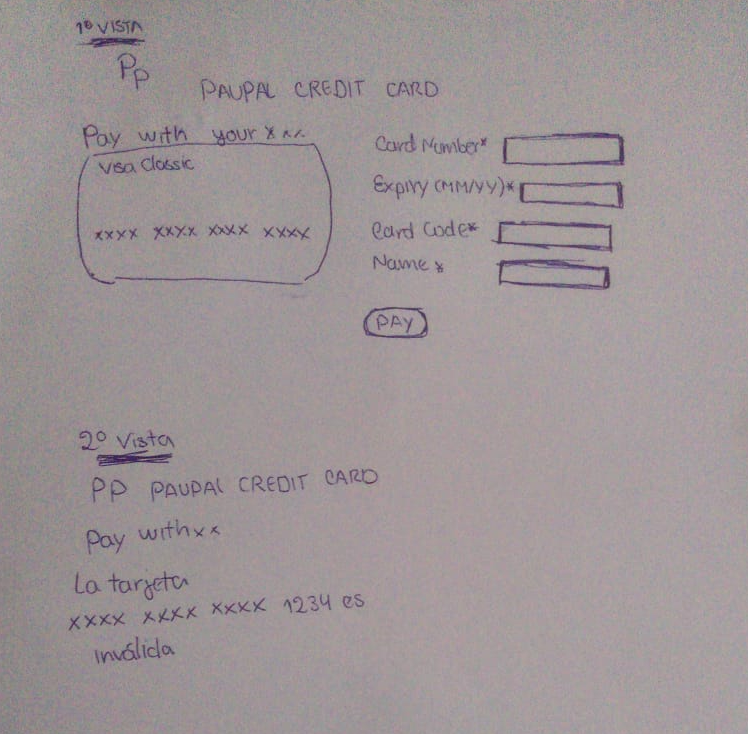 1º VISTA
PP
PAUPAL CREDIT CARD
Pay with your xxx
Visa Classic
xxxx xxxx xxxx xxxx
Card Number*
Expiry (MM/YY)*
Card Code*
Name *
PAY
2º Vista
PP PAUPAL CREDIT CARD
Pay with xx
La tarjeta
xxxx xxxx xxxx 1234 es
inválida